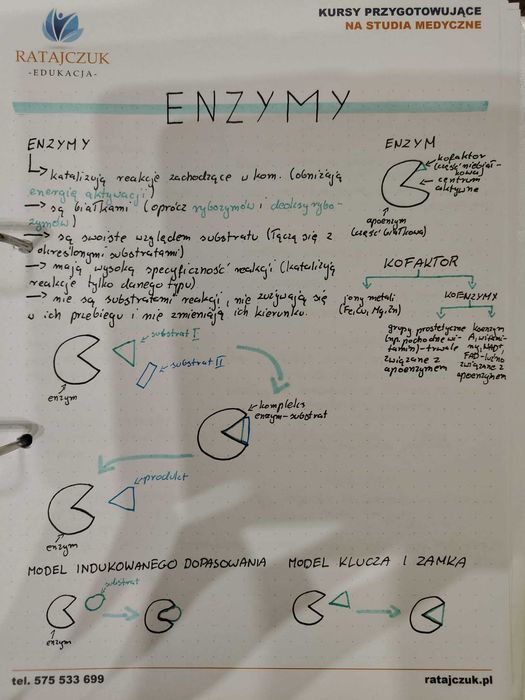 KURSY PRZYGOTOWUJĄCE
NA STUDIA MEDYCZNE
RATAJCZUK
-EDUKACJA-
ENZYMY
ENZYMY
↳ katalizują reakcje zachodzące w kom. (obniżają
energię aktywacji)
→ są białkami (oprócz rybozymów i deoksyrybo-
zymów)
→ są swoiste względem substratu (łączą się z
określonymi substratami)
→ mają wysoką specyficzność reakcji (katalizują
reakcje tylko danego typu)
→ nie są substratami reakcji, nie zużywają się
w ich przebiegu i nie zmieniają ich kierunku.
ENZYM
kofaktor
(część niebiał-
kowa)
centrum
aktywne
apoenzym
(część białkowa)
KOFAKTOR
jony metali
(Fe, Cu, Mg, Zn)
KOENZYMY
grupy prostetyczne
(np. pochodne wi-
tamin) - trwale
związane z
apoenzymem
koenzym
A, witami-
ny, NADP⁺
FAD - luźno
związane z
apoenzymem
substrat I
substrat II
enzym
kompleks
enzym-substrat
produkt
enzym
MODEL INDUKOWANEGO DOPASOWANIA
MODEL KLUCZA I ZAMKA
substrat
enzym
tel. 575 533 699
ratajczuk.pl